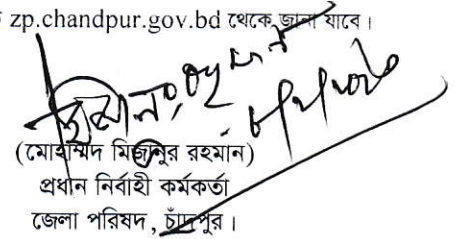 zp.chandpur.gov.bd থেকে জানা যাবে।
(মোহাম্মদ মিজানুর রহমান)
প্রধান নির্বাহী কর্মকর্তা
জেলা পরিষদ, চাঁদপুর।